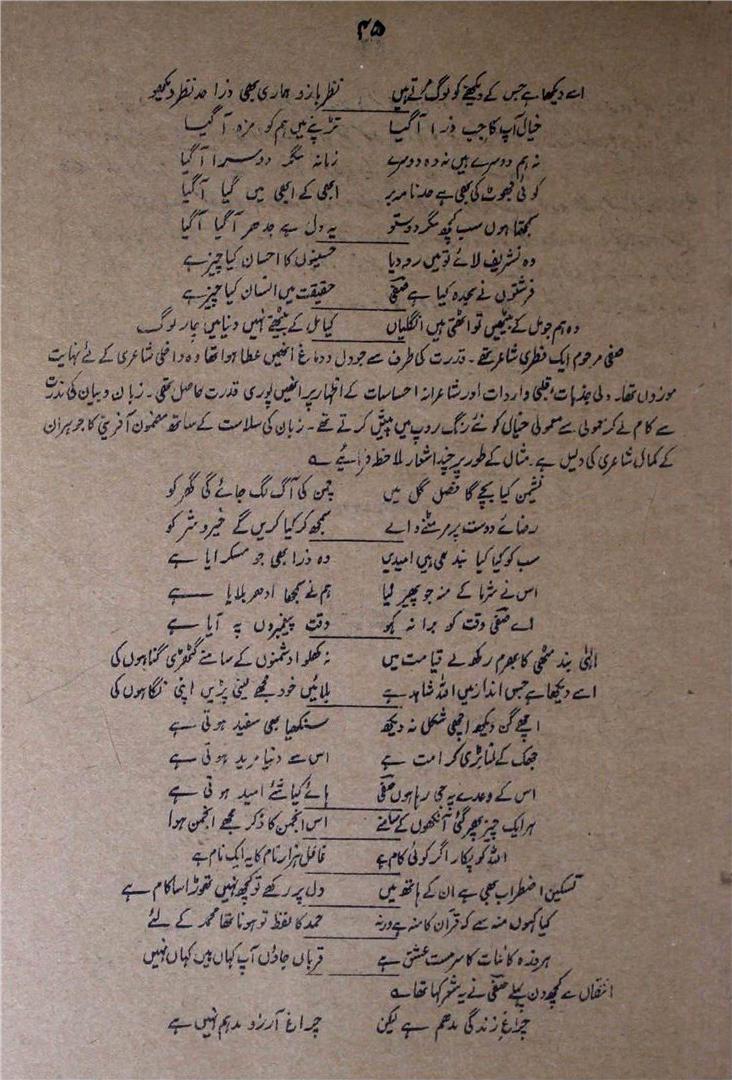 ۴۵
اسے دیکھا ہے جس کے دیکھنے کو لوگ مرتے ہیں نظر بازو ہماری بھی ذرا حد نظر دیکھو
خیال آپ کا جب ذرا آگیا تڑپنے میں ہم کو مزہ آگیا
نہ ہم دوسرے ہیں نہ وہ دوسرے زمانہ مگر دوسرا آگیا
کوئی جھوٹ کی بھی ہے حد نامہ بر ابھی کے ابھی میں گیا آگیا
سمجھتا ہوں سب کچھ مگر دوستو یہ دل ہے جدھر آگیا آگیا
وہ تشریف لائے تو میں رو دیا حسینوں کا احسان کیا چیز ہے
فرشتوں نے سجدہ کیا ہے صفی حقیقت میں انسان کیا چیز ہے
وہ ہم جو مل کے بیٹھیں تو اٹھتی ہیں انگلیاں کیا مل کے بیٹھتے نہیں دنیا میں چار لوگ
صفی مرحوم ایک فطری شاعر تھے۔ قدرت کی طرف سے جو دل و دماغ انھیں عطا ہوا تھا وہ داخلی شاعری کے لئے نہایت
موزوں تھا۔ دلی جذبات، قلبی واردات اور شاعرانہ احساسات کے اظہار پر انھیں پوری قدرت حاصل تھی۔ زبان و بیان کی ندرت
سے کام لے کر معمولی سے معمولی خیال کو نئے رنگ روپ میں پیش کرتے تھے۔ زبان کی سلاست کے ساتھ مضمون آفرینی کا جوہر ان
کے کمال شاعری کی دلیل ہے۔ مثال کے طور پر چند اشعار ملاحظہ فرمائیے ؎
نشیمن کیا بچے گا فصل گل میں چمن کی آگ لگ جائے گی گھر کو
رضائے دوست پر مر مٹنے والے سمجھ کر کیا کریں گے خیر و شر کو
سب کو کیا کیا بندھی ہیں امیدیں وہ ذرا بھی جو مسکرایا ہے
اس نے شرما کے منہ جو پھیر لیا ہم نے سمجھا ادھر بلایا ہے
اے صفی وقت کو برا نہ کہو وقت پیغمبروں پہ آیا ہے
الٰہی بند مٹھی کا بھرم رکھ لے قیامت میں نہ کھلوا دشمنوں کے سامنے گٹھڑی گناہوں کی
اسے دیکھا ہے جس انداز میں اللہ شاہد ہے بلائیں خود مجھے لینی پڑیں اپنی نگاہوں کی
اچھے گن دیکھ اچھی شکل نہ دیکھ سنکھیا بھی سفید ہوتی ہے
جھک کے ملنا بڑی کرامت ہے اس سے دنیا مرید ہوتی ہے
اس کے وعدے پہ جی رہا ہوں صفی ہائے کیا شئے امید ہوتی ہے
ہر ایک چیز پھر گئی آنکھوں کے سامنے اس انجمن کا ذکر مجھے انجمن ہوا
اللہ کو پکار اگر کوئی کام ہے غافل ہزار نام کا یہ ایک نام ہے
تسکین اضطراب بھی ہے ان کے ہاتھ میں دل پر رکھے تو کچھ نہیں تھوڑا سا کام ہے
کیا کہوں منہ سے کہ قرآن کا منہ ہے ورنہ حمد کا لفظ تو ہونا تھا محمد کے لئے
ہر ذرہ کائنات کا سرمست عشق ہے قرباں جاؤں آپ کہاں ہیں کہاں نہیں
انتقال سے کچھ دن پہلے صفی نے یہ شعر کہا تھا ؎
چراغ زندگی مدھم ہے لیکن چراغ آرزو مدہم نہیں ہے